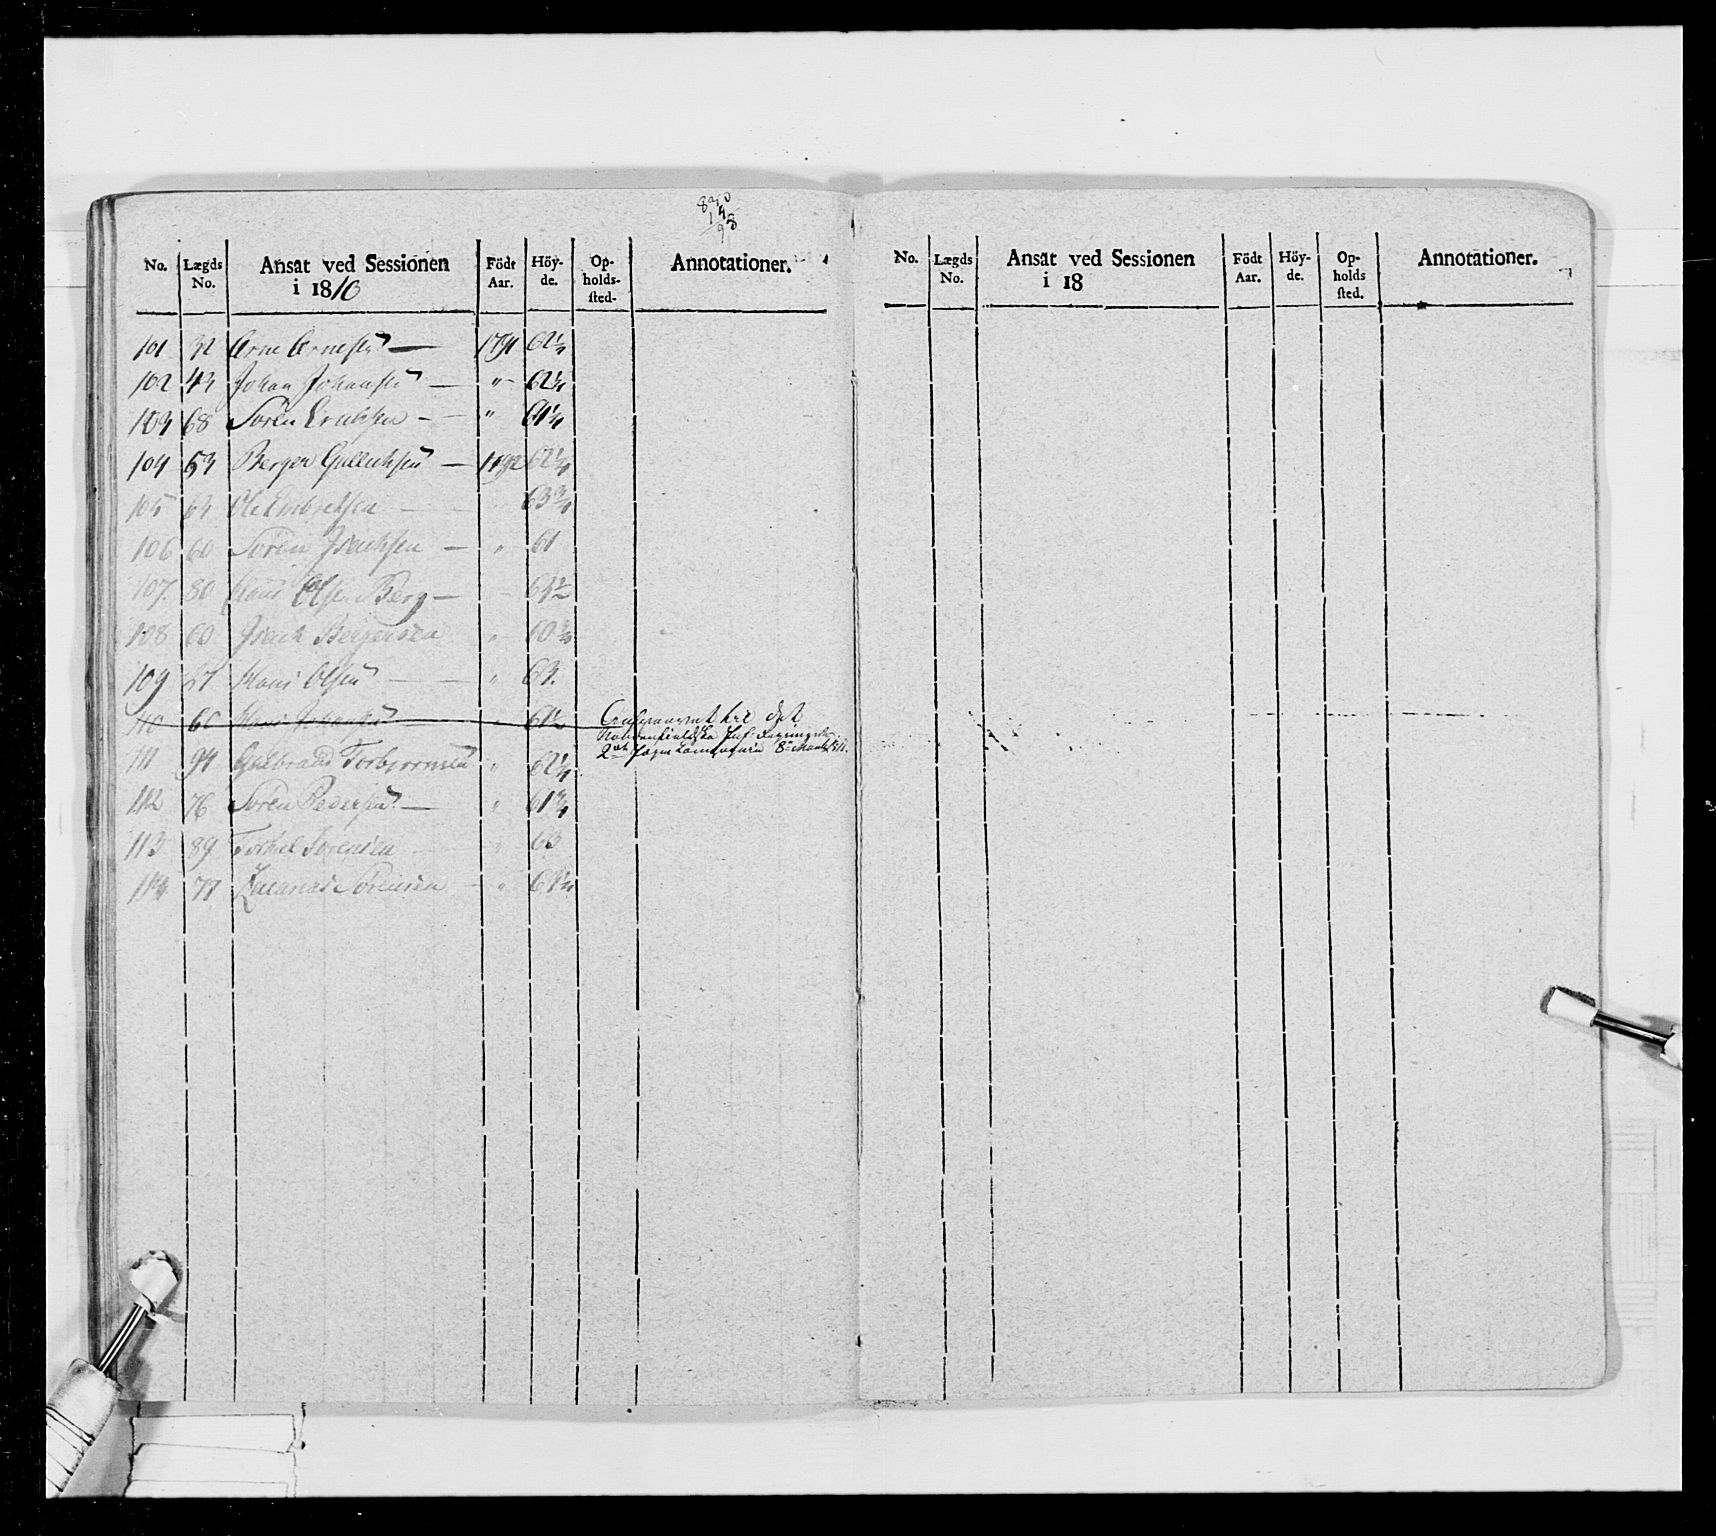 No. Lægds No. Ansat ved Sessionen i 1810 Födt Aar. Höy-de. Op-holds-sted. Annotationer.
101 32 Arne Arnesen — 1791 62¼
102 43 Johan Johansen — " 62¼
103 68 Søren Erichsen — " 61¼
104 53 Berger Gullichsen — 1792 62¼
105 63 Ole Embretsen — 63¾
106 60 Søren Isachsen — " 61
107. 80 Olsen Berg —
108 60 Isach Bergersen " 60¾
109 67 Hans Olsen — " 63.
110 66 Hans Johansen 61½ til det
2det 8de Marts 1811.
111 94 Gulbrand Torbjørnsen " 62¼
112 76 Søren Pedersen — " 61¾
113 89 Torkel Sørensen 63
114 77 Zacarias Sørensen — "
No. Lægds No. Ansat ved Sessionen i 18 Födt Aar. Höy-de. Op-holds sted. Annotationer.